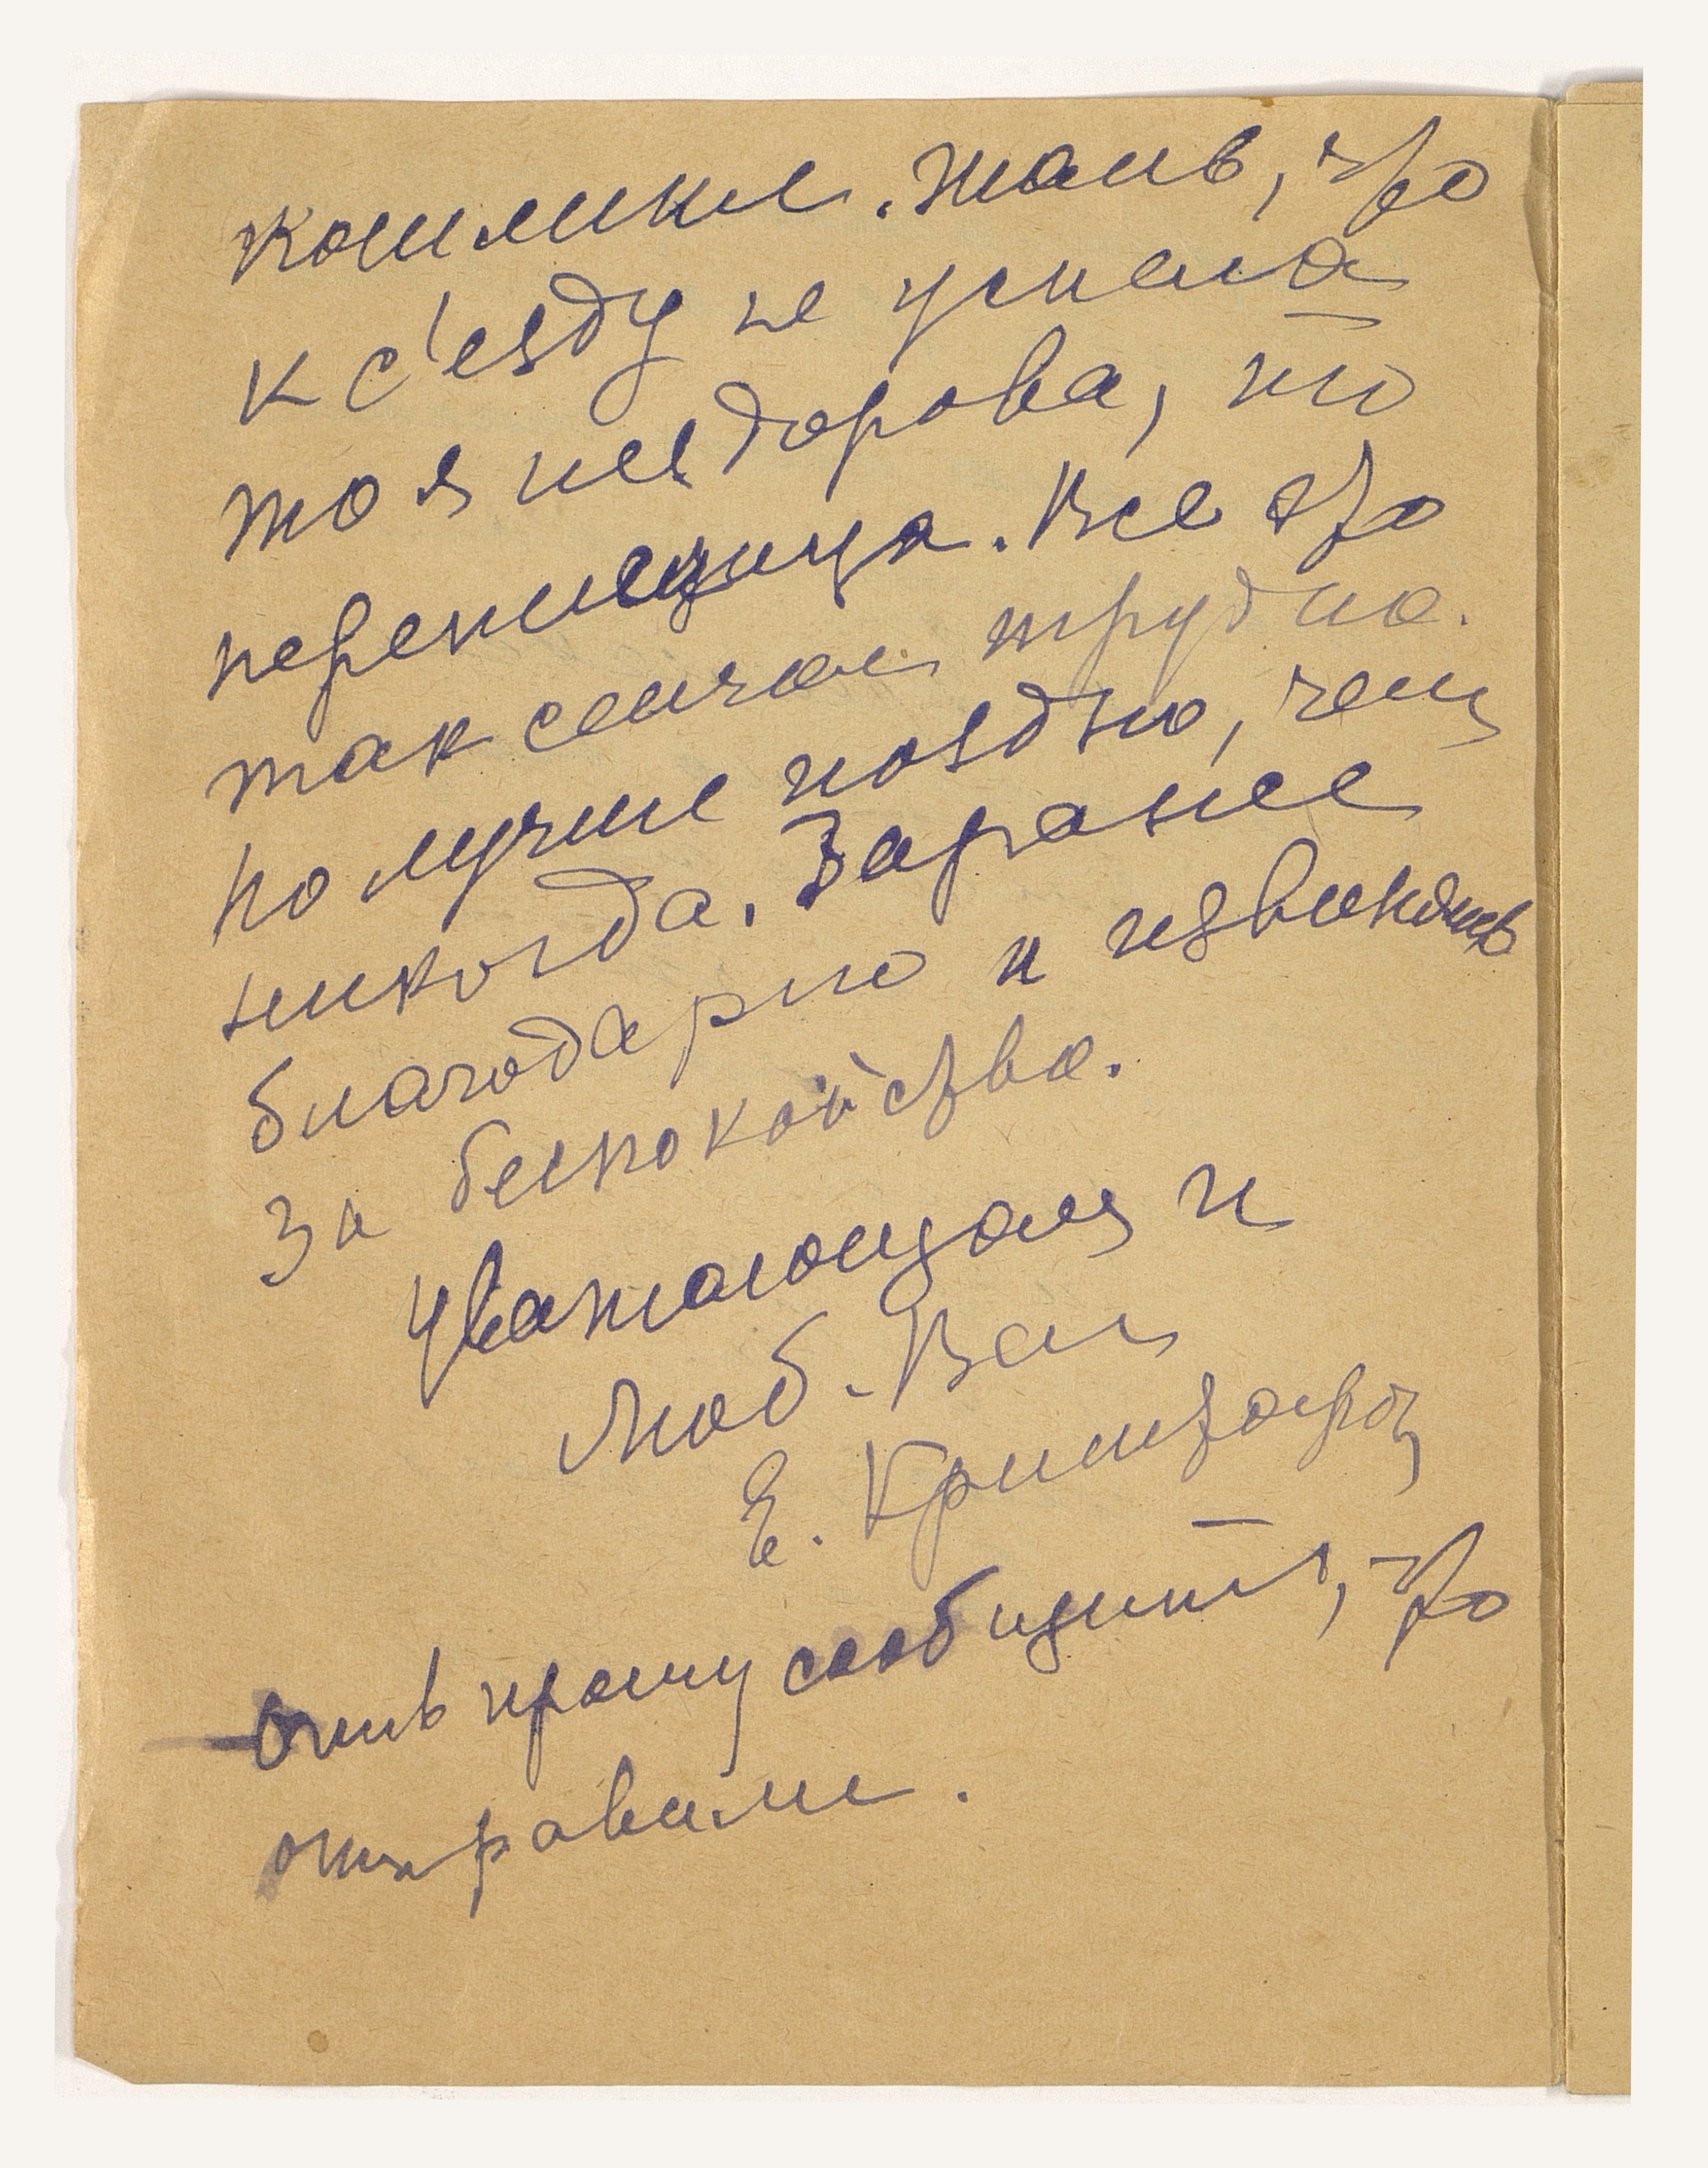 кошмике. Жаль, что
к с'езду не успела
то я нездорова, то
переписчица. Все это
так сейчас трудно.
Но лучше поздно, чем
никогда. Заранее
благодарю и извиняюсь
за беспокойство.
Уважающая и
люб. Вас
Е.
Очень прошу сообщить, что
отправили.